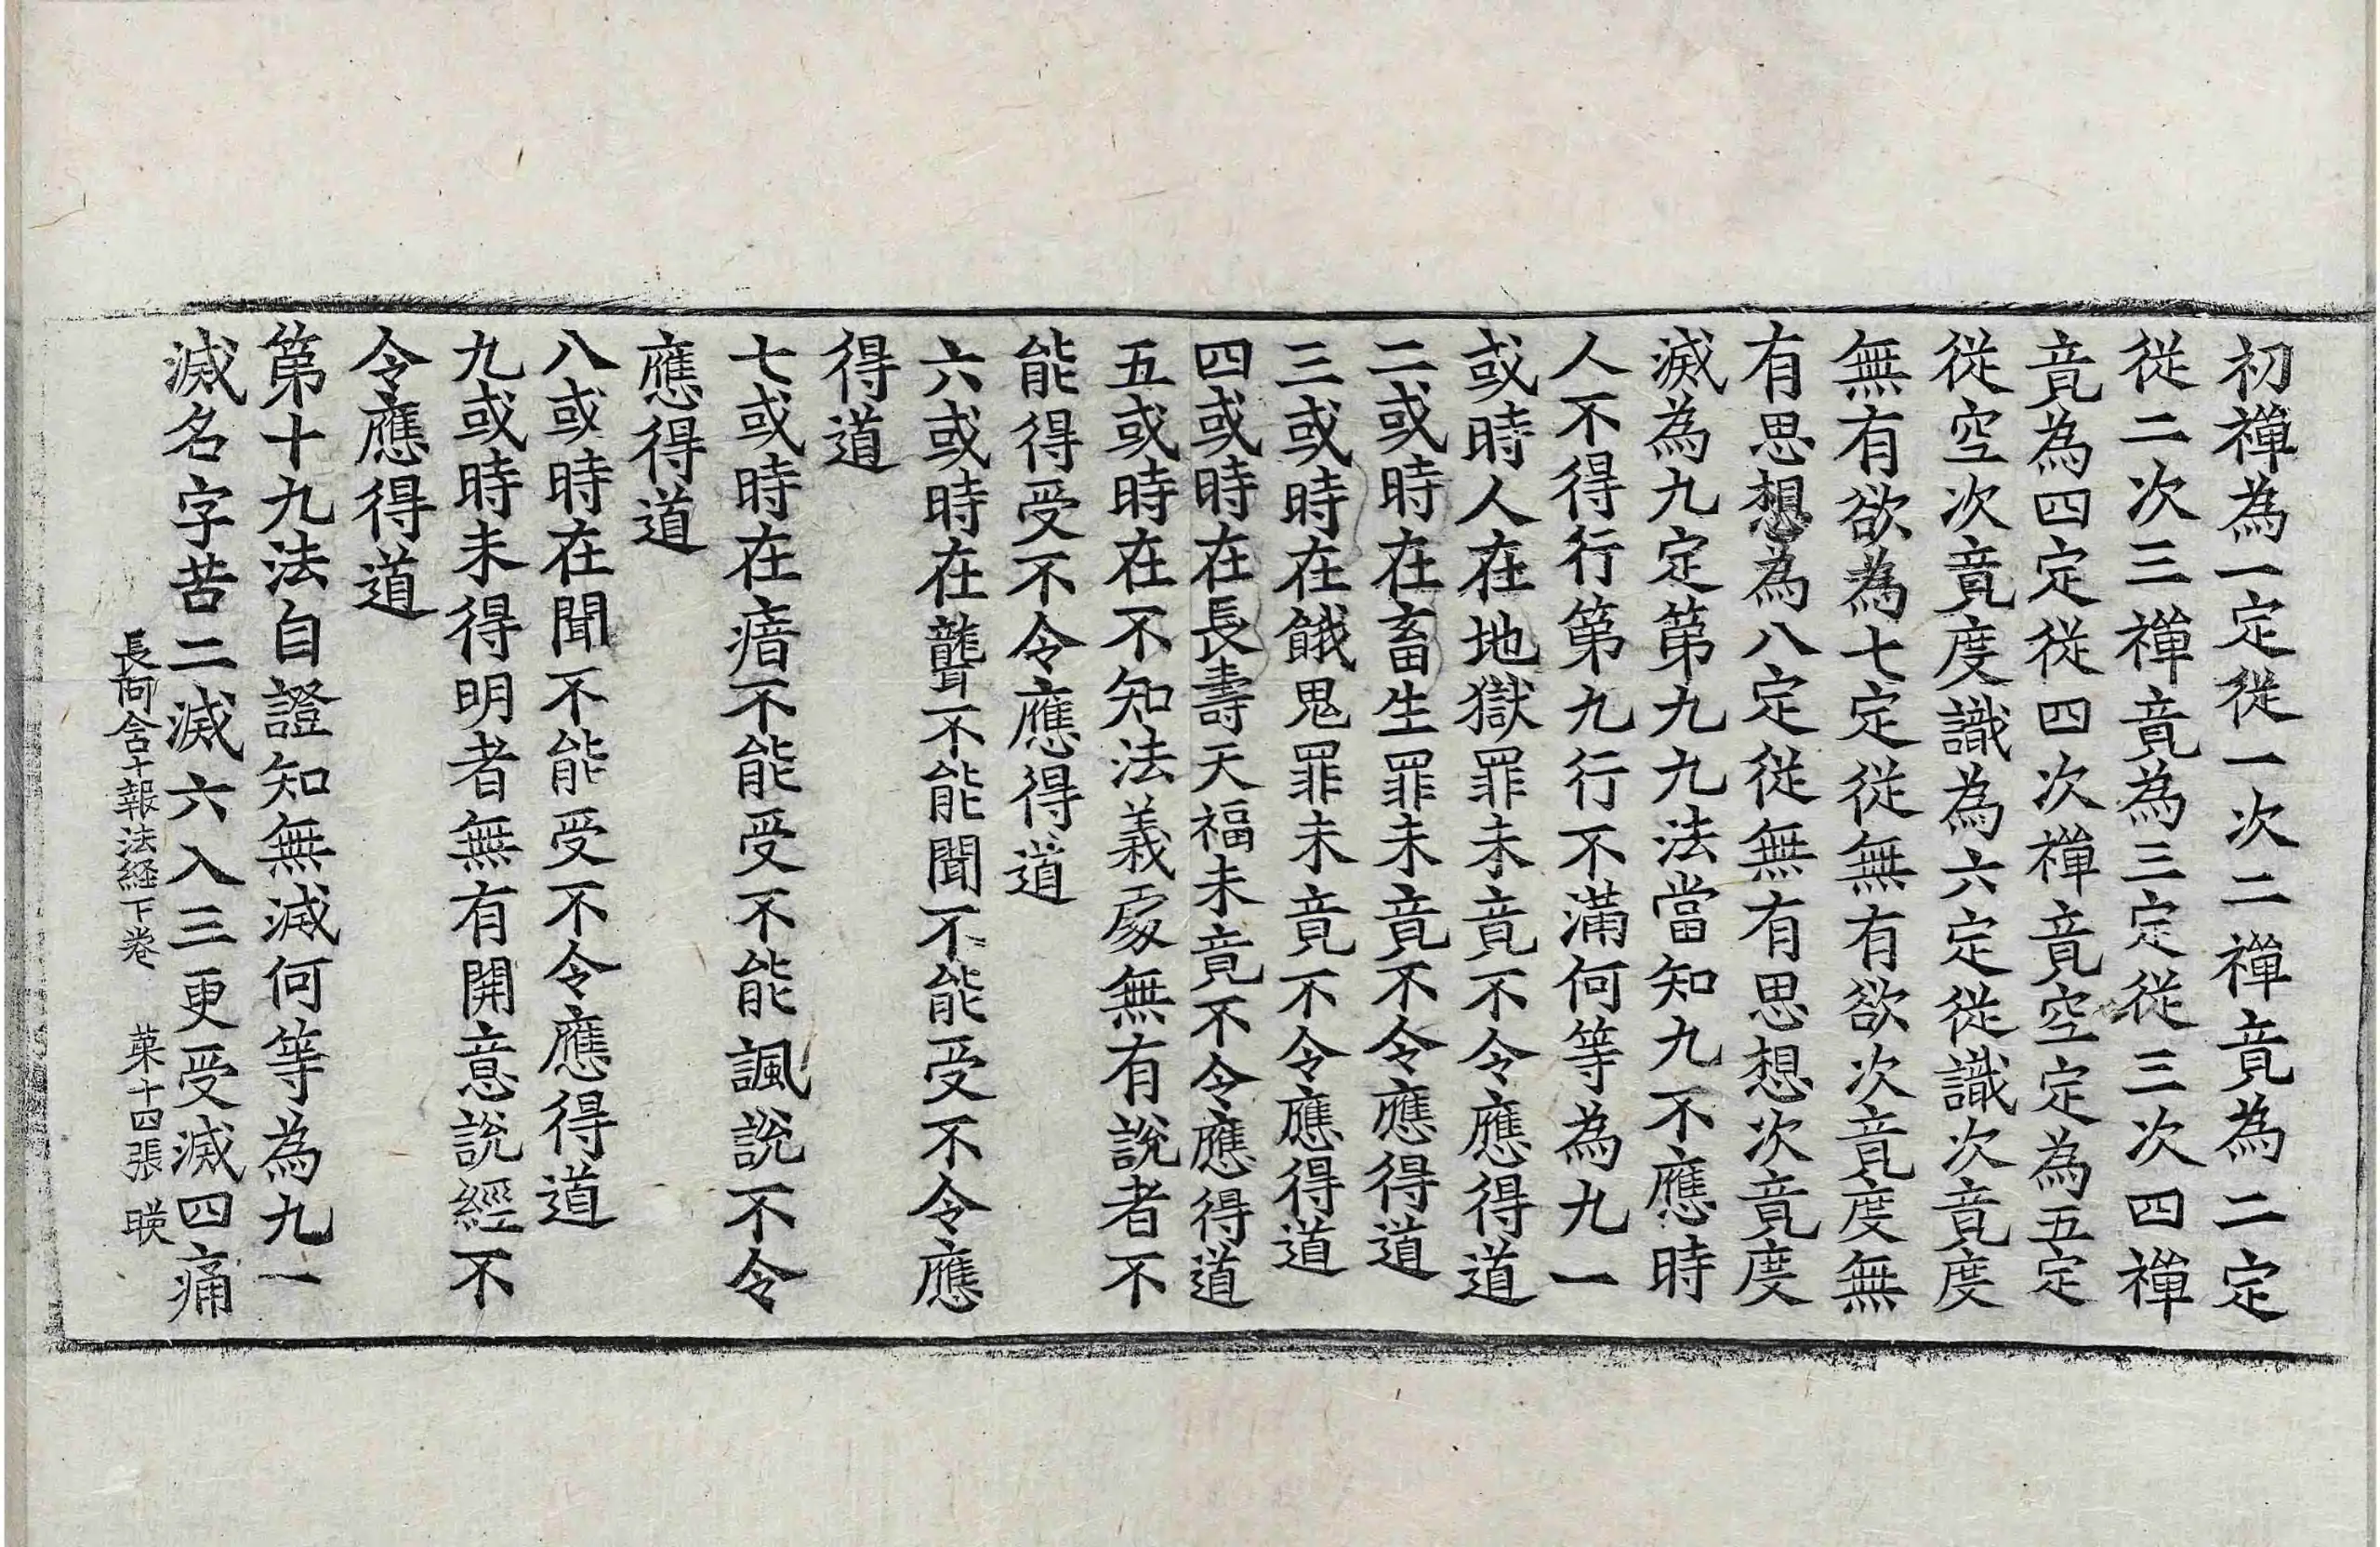 初禪為一定從一次二禪竟為二定
從二次三禪竟為三定從三次四禪
竟為四定從四次禪竟空定為五定
從空次竟度識為六定從識次竟度
無有欲為七定從無有欲次竟度無
有思想為八定從無有思想次竟度
滅為九定第九九法當知九不應時
人不得行第九行不滿何等為九一
或時人在地獄罪未竟不令應得道
二或時在畜生罪未竟不令應得道
三或時在餓鬼罪未竟不令應得道
四或時在長壽天福未竟不令應得道
五或時在不知法義處無有說者不
能得受不令應得道
六或時在聾不能聞不能受不令應
得道
七或時在瘖不能受不能諷說不令
應得道
八或時在聞不能受不令應得道
九或時未得明者無有開意說經不
令應得道
第十九法自證知無滅何等為九一
滅名字苦二滅六入三更受滅四痛
長阿含十報法経下卷 菓十四張 暎